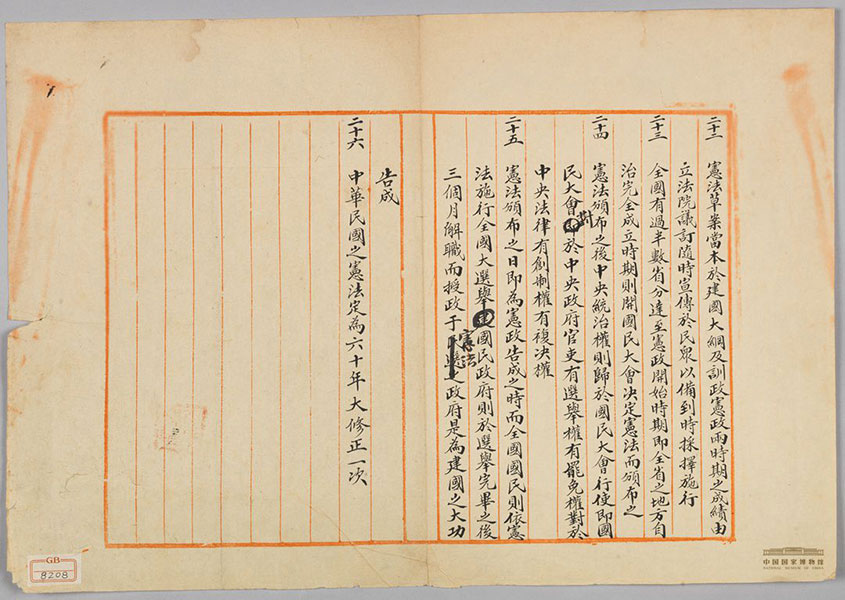 二十二 憲法草案當本於建國大綱及訓政憲政兩時期之成績由
立法院議訂隨時宣傳於民眾以備到時採擇施行
二十三 全國有過半數省分達至憲政開始時期即全省之地方自
治完全成立時期則開國民大會决定憲法而頒布之
二十四 憲法頒布之後中央統治權則歸於國民大會行使即國
民大會對於中央政府官吏有選舉權有罷免權對於
中央法律有創制權有複决權
二十五 憲法頒布之日即為憲政告成之時而全國國民則依憲
法施行全國大選舉國民政府則於選舉完畢之後
三個月解職而授政于憲法之政府是為建國之大功
告成
二十六 中華民國之憲法定為六十年大修正一次
GB
8208
中国国家博物馆
NATIONAL MUSEUM OF CHINA